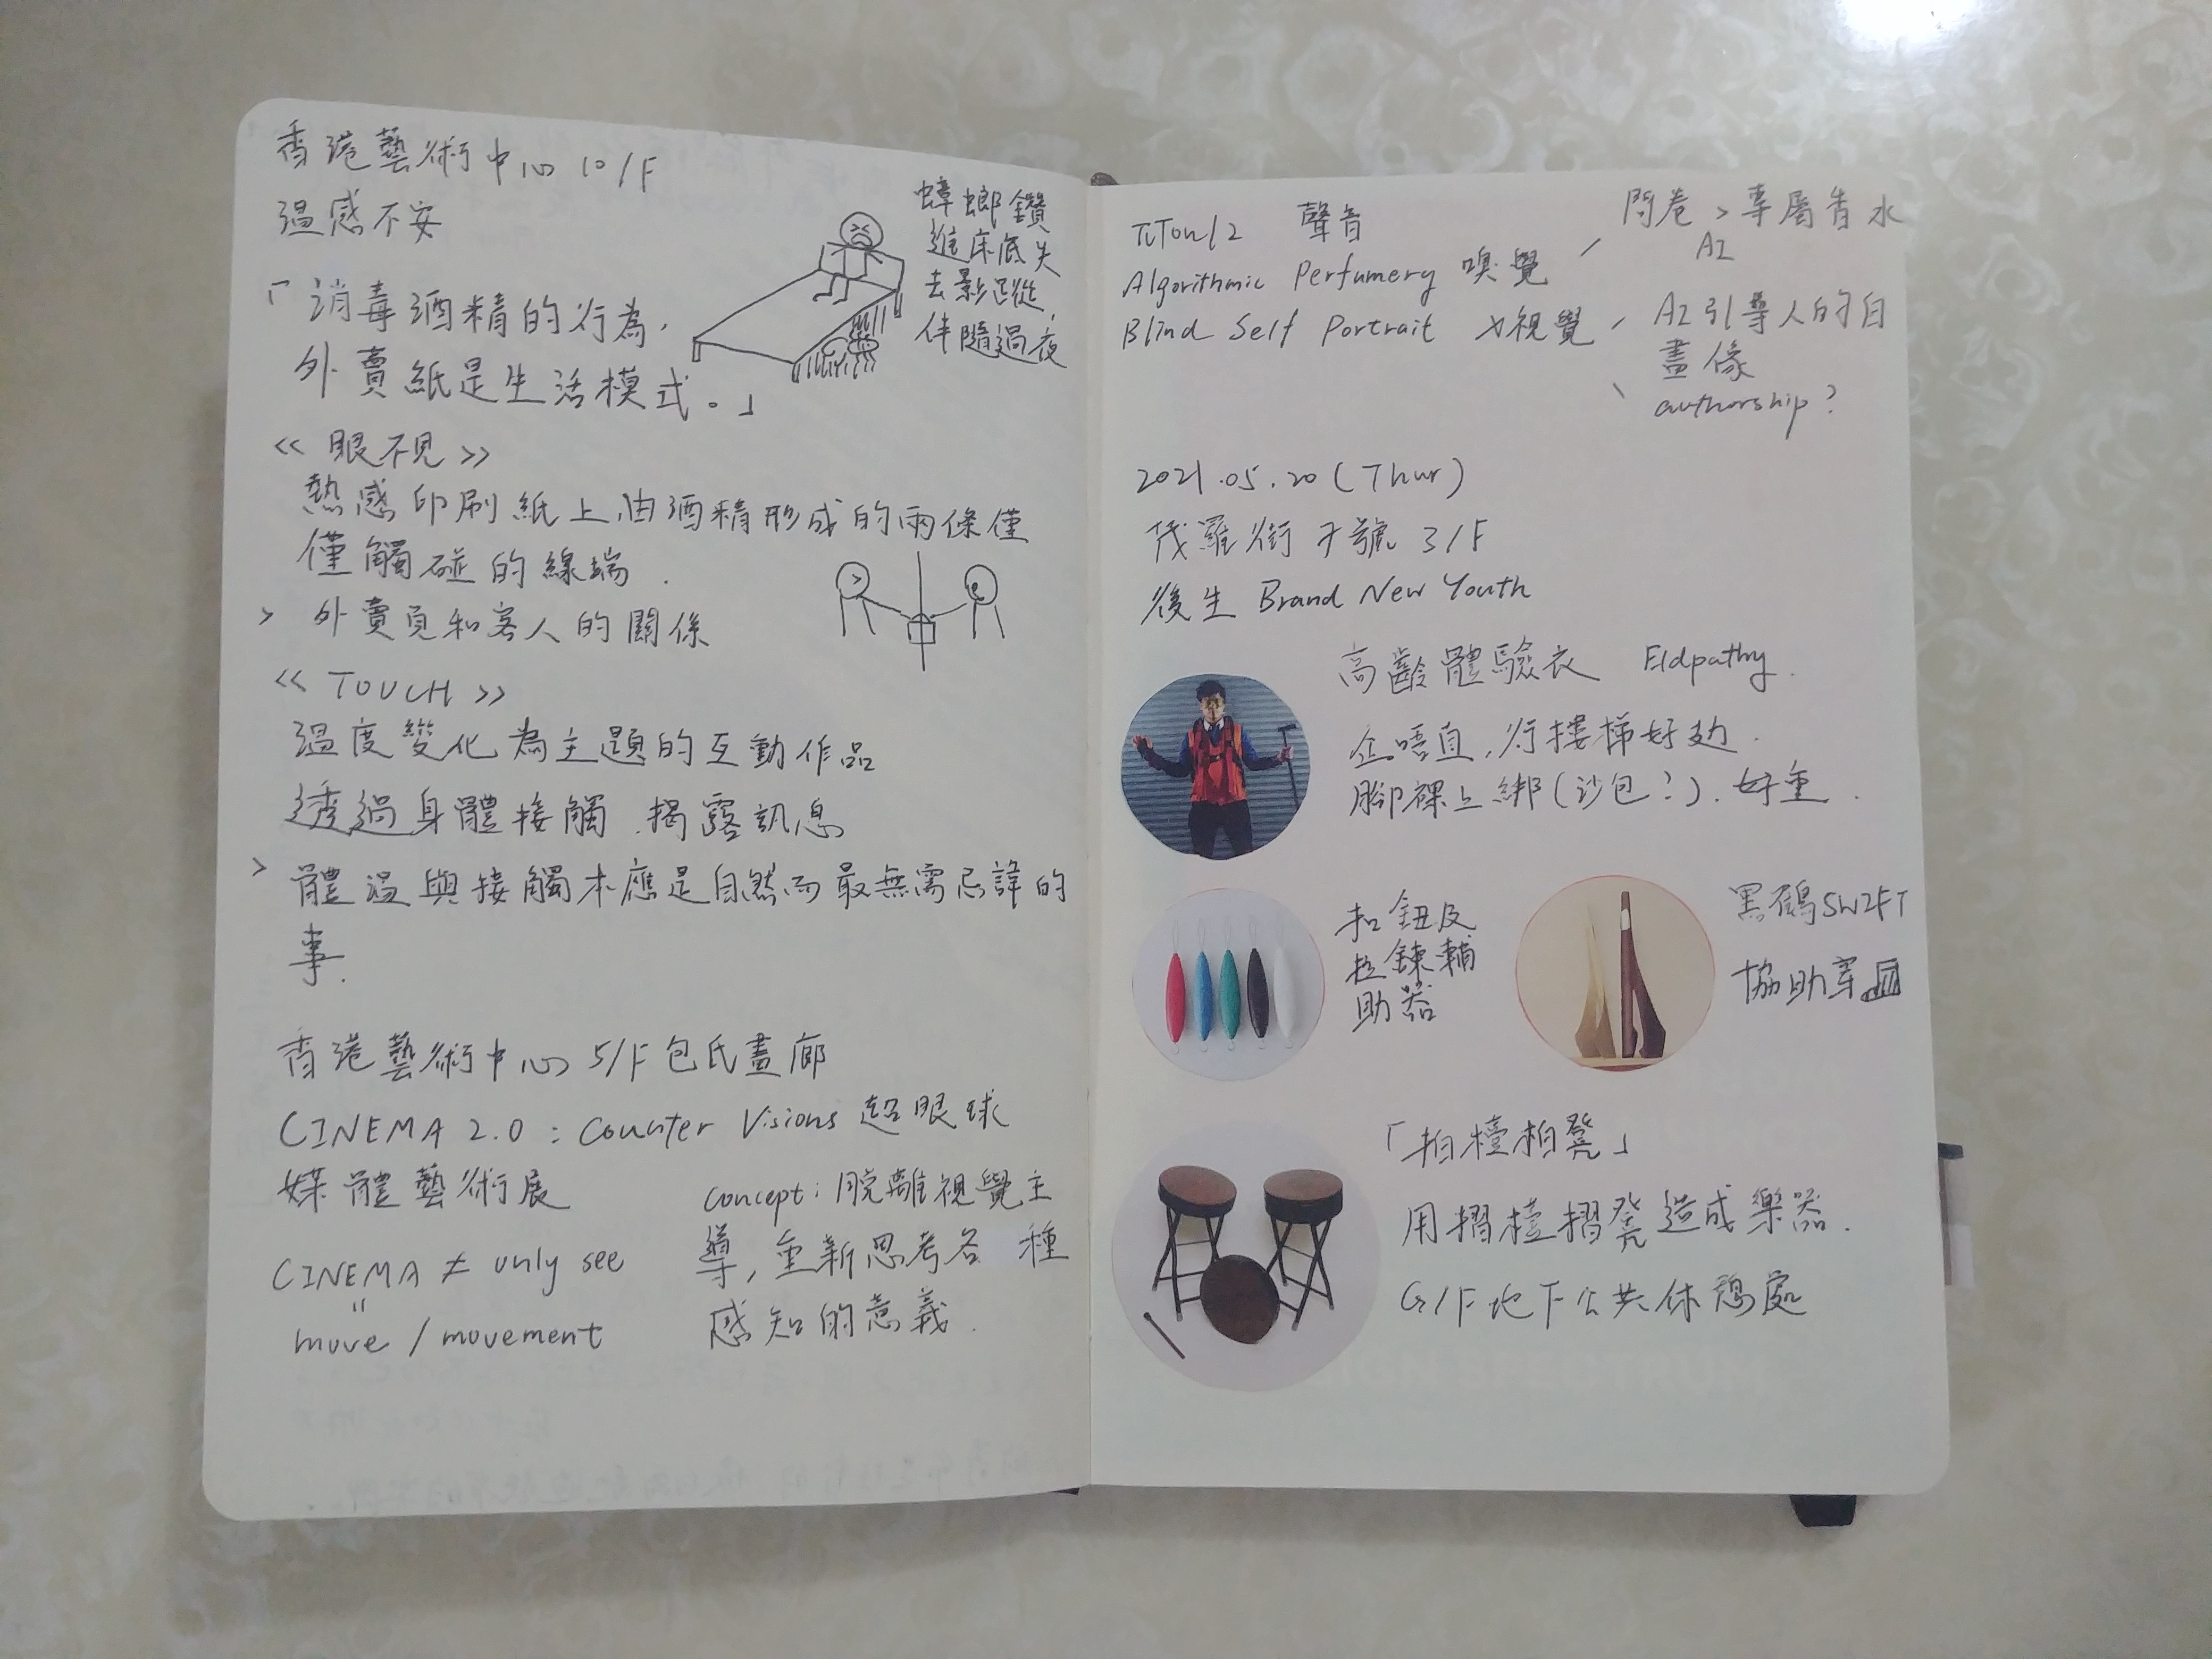 香港藝術中心 10/F
溫感不安
「消毒酒精的行為,
外賣紙是生活模式。」
蟑螂鑽
進床底失
去影蹤,
伴隨過夜
<<眼不見>>
熱感印刷紙上,由酒精形成的兩條僅
僅觸碰的線端.
> 外賣員和客人的關係
<<TOUCH>>
溫度變化為主題的互動作品
透過身體接觸,揭露訊息
> 體溫與接觸本應是自然而最無需忌諱的
事.
香港藝術中心 5/F 包氏畫廊
CINEMA 2.0 : Counter Visions 超眼球
媒體藝術展
CINEMA ≠ only see
"
move / movement
concept: 脫離視覺主
導, 重新思考各種
感知的意義.
聲音
Algorithmic Perfumery 嗅覺
Blind Self Portrait x視覺
問卷 > 專屬香水
AI
AI引導人的自
畫像
authorship?
2021.05.20 (Thur)
茂羅街7號 3/F
後生 Brand New Youth
高齡體驗衣 Eldpathy.
企唔直,行樓梯好攰.
腳裸上綁(沙包?).好重.
扣鈕及
拉鍊輔
助器
黑鶴SWIFT
協助穿
「拍檯拍凳」
用摺檯摺凳造成樂器.
G/F地下公共休憩處